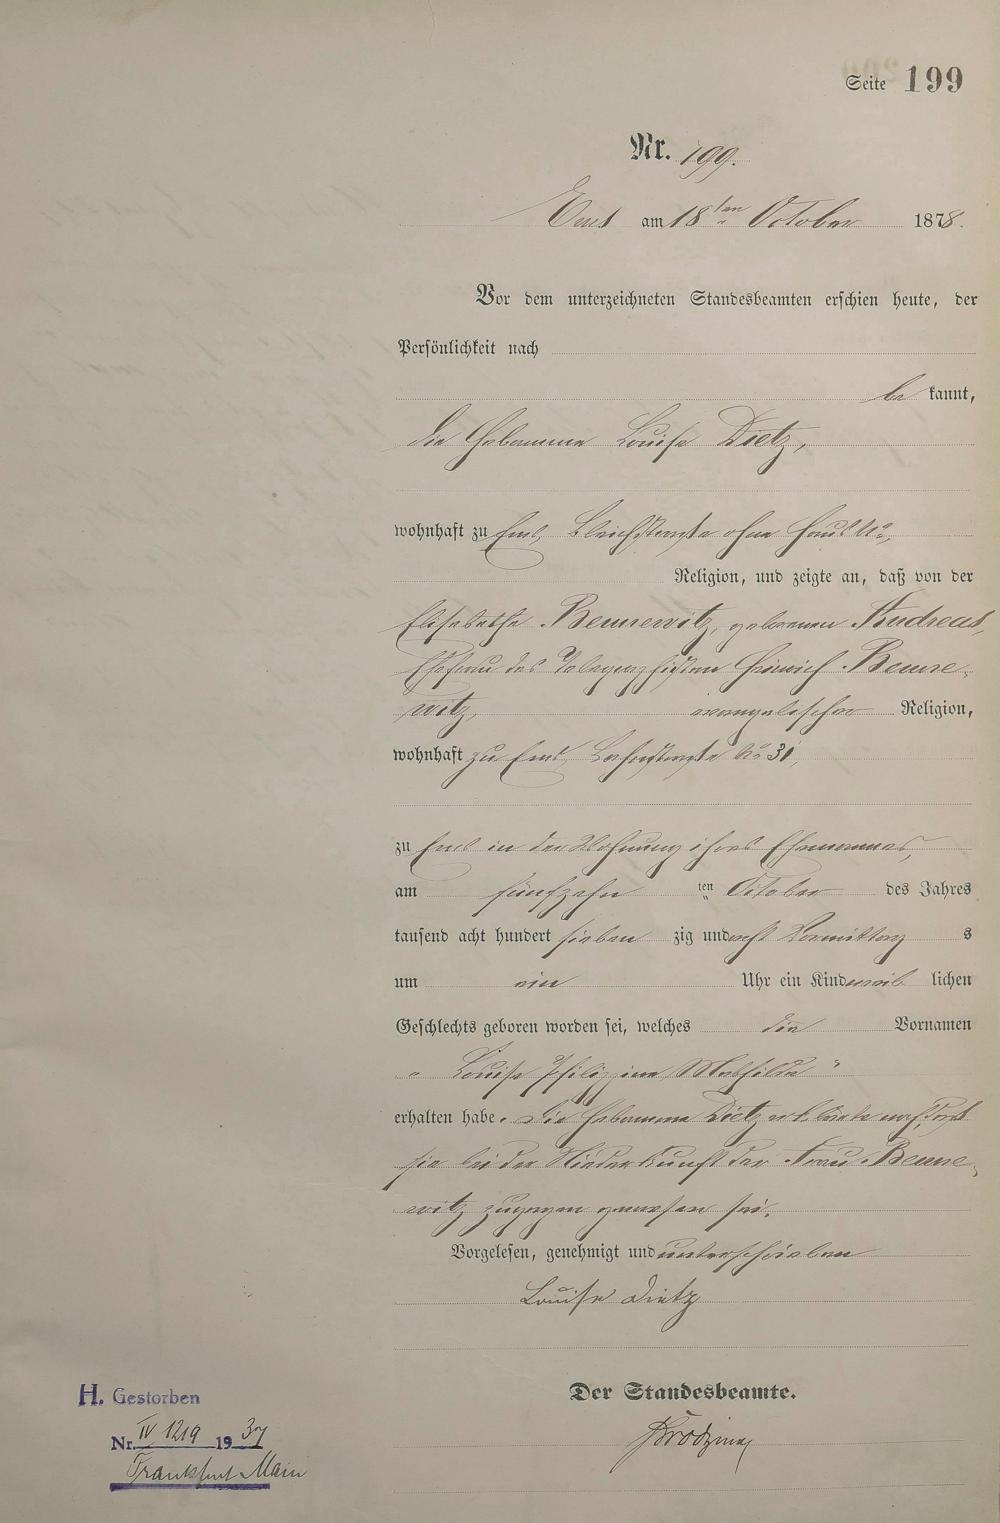 Seite 199
Nr. 199.
Ems am 18ten October 1878.
Vor dem unterzeichneten Standesbeamten erschien heute, der
Persönlichkeit nach
be kannt,
die Hebamme Louise Dietz,
wohnhaft zu Ems, Bleichstraße ohne Haus No,
Religion, und zeigte an, daß von der
Elisabethe Bennewitz, geborenen Andreas,
Ehefrau des Heinrich Benne-
witz, evangelischer Religion,
wohnhaft zu Ems, No 31,
zu Ems in der Wohnung ihres Ehemannes,
am fünfzehn ten October des Jahres
tausend acht hundert sieben zig und acht Vormittag s
um ein Uhr ein Kind weib lichen
Geschlechts geboren worden sei, welches die Vornamen
" Louise Philippine Mathilde "
erhalten habe. Die Hebamme Dietz erklärte noch, daß
sie bei der Niederkunft der Frau Benne-
witz zugegen gewesen sei.
Vorgelesen, genehmigt und unterschrieben
Louise Dietz
Der Standesbeamte.
H. Gestorben
Nr. IV 1219 1937
Frankfurt Main